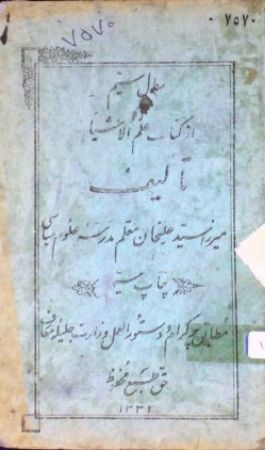 ۷۵۷۰
۰۷۵۷۰
سیم
از کتاب علم الاشیا
تألیف
میرزا سید علیخان معلم مدرسه علوم سیاسی
چاپ سیم
مطابق پروگرام و دستور العمل وزارت جلیله معارف
حق طبع محفوظ
۱۳۳۲